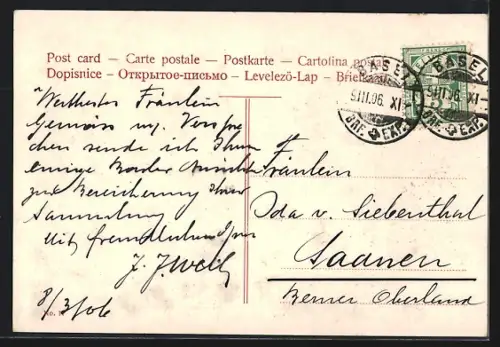 Post card – Carte postale – Postkarte – Cartolina postale
Dopisnice – Открытое-письмо – Levelező-Lap – Briefkaart
BASEL
9.III.06. XI–
BHF. EXP.
BASEL
9.III.06. XI–
BHF. EXP.
Werthestes Fräulein
Gemäss m. Verspre
chen sende ich Ihnen
einige Basler Ansichten
zur Bereicherung Ihrer
Sammlung
Mit freundlichem Gruss
8/3/06
Fräulein
Ida v. Siebenthal
Saanen
Berner Oberland